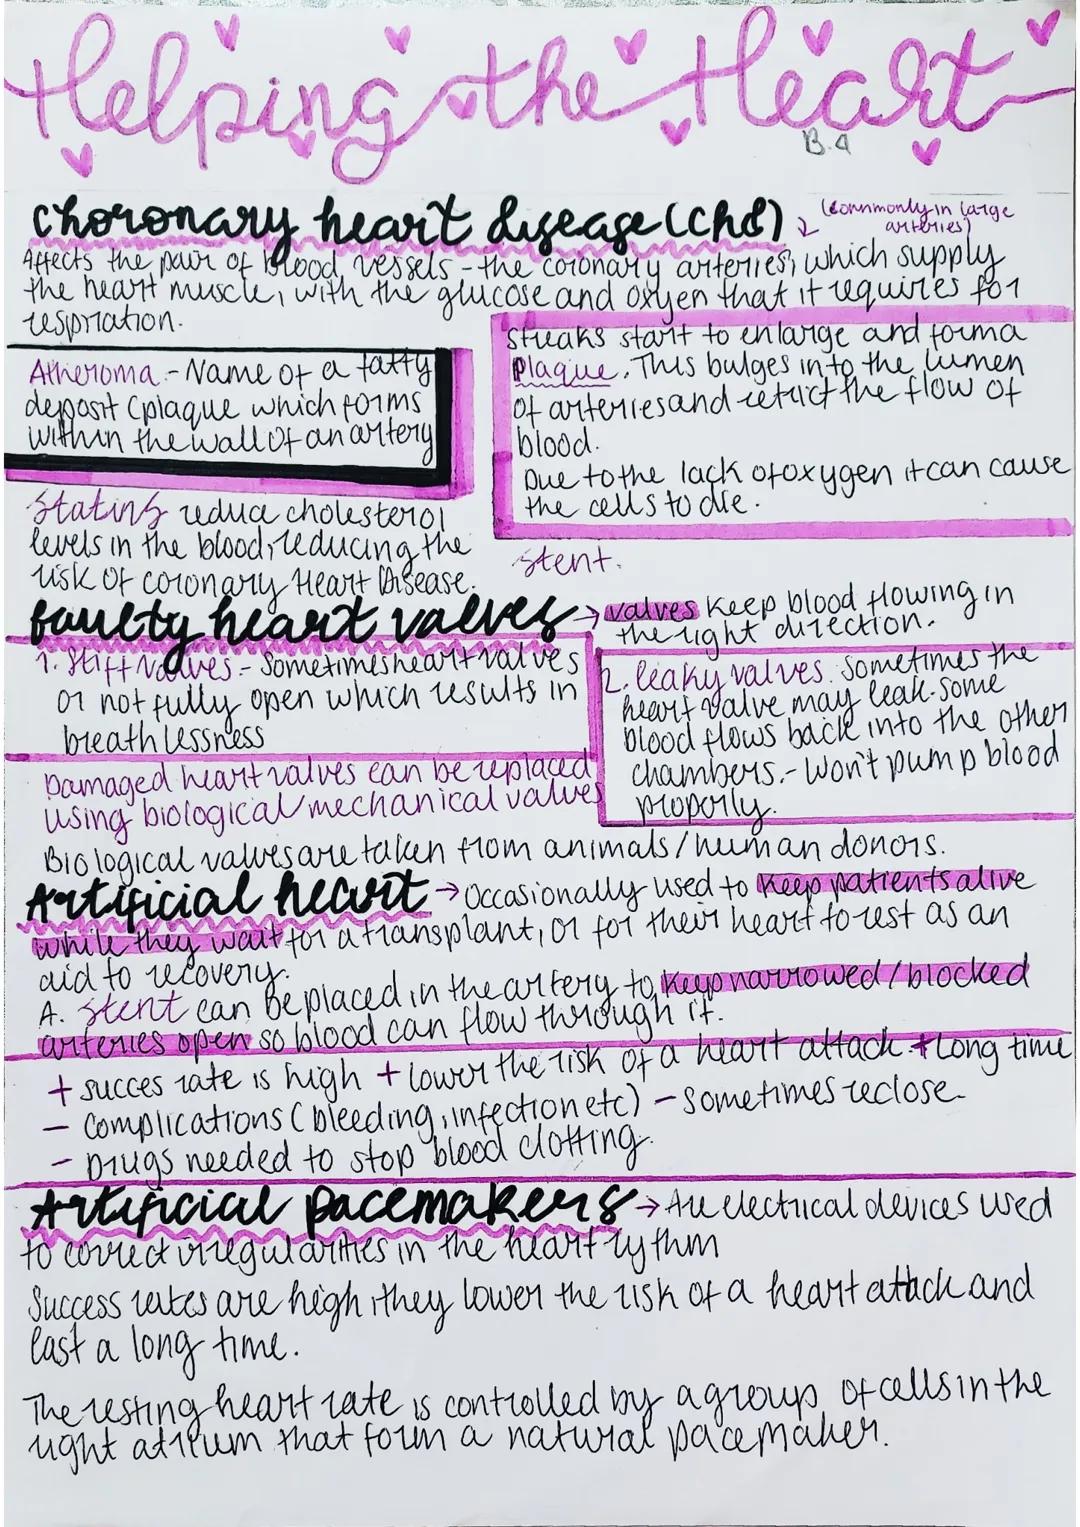 Helping the Heart
B.4
Choronary heart disease (Chd)
(commonly in large
arteries)
Affects the pair of blood vessels - the coronary arteries, which supply
the heart muscle, with the glucose and oxyen that it requires for
respriation.
Atheroma - Name of a fatty
deposit (plaque which forms
within the wall of an artery
Streaks start to enlarge and form a
Plaque. This bulges into the lumen
of arteries and retrict the flow of
blood.
Due to the lack of oxygen it can cause
the cells to die.
Statins reduce cholesterol
levels in the blood, reducing the
risk of coronary Heart Disease.
Stent.
faulty heart valves → valves keep blood flowing in
the right direction.
1. Stiff Valves - Sometimes heart valves
or not fully open which results in
breathlessness
2. leaky valves. Sometimes the
heart valve may leak. Some
blood flows back into the other
chambers. - Won't pump blood
properly.
Damaged heart valves can be replaced
using biological/mechanical valves
Biological valves are taken from animals/human donors.
Artificial heart → Occasionally used to keep patients alive
while they wait for a transplant, or for their heart to rest as an
aid to recovery.
A. Stent can be placed in the artery to keep narrowed/blocked
arteries open so blood can flow through it.
+ succes rate is high + lower the risk of a heart attack + Long time
- Complications (bleeding, infection etc) - Sometimes reclose
- Drugs needed to stop blood clotting.
Artificial pacemakers → Are electrical devices used
to correct irregularities in the heart rythm
Success rates are high, they lower the risk of a heart attack and
last a long time.
The resting heart rate is controlled by a group of cells in the
right atrium that form a natural pacemaker.